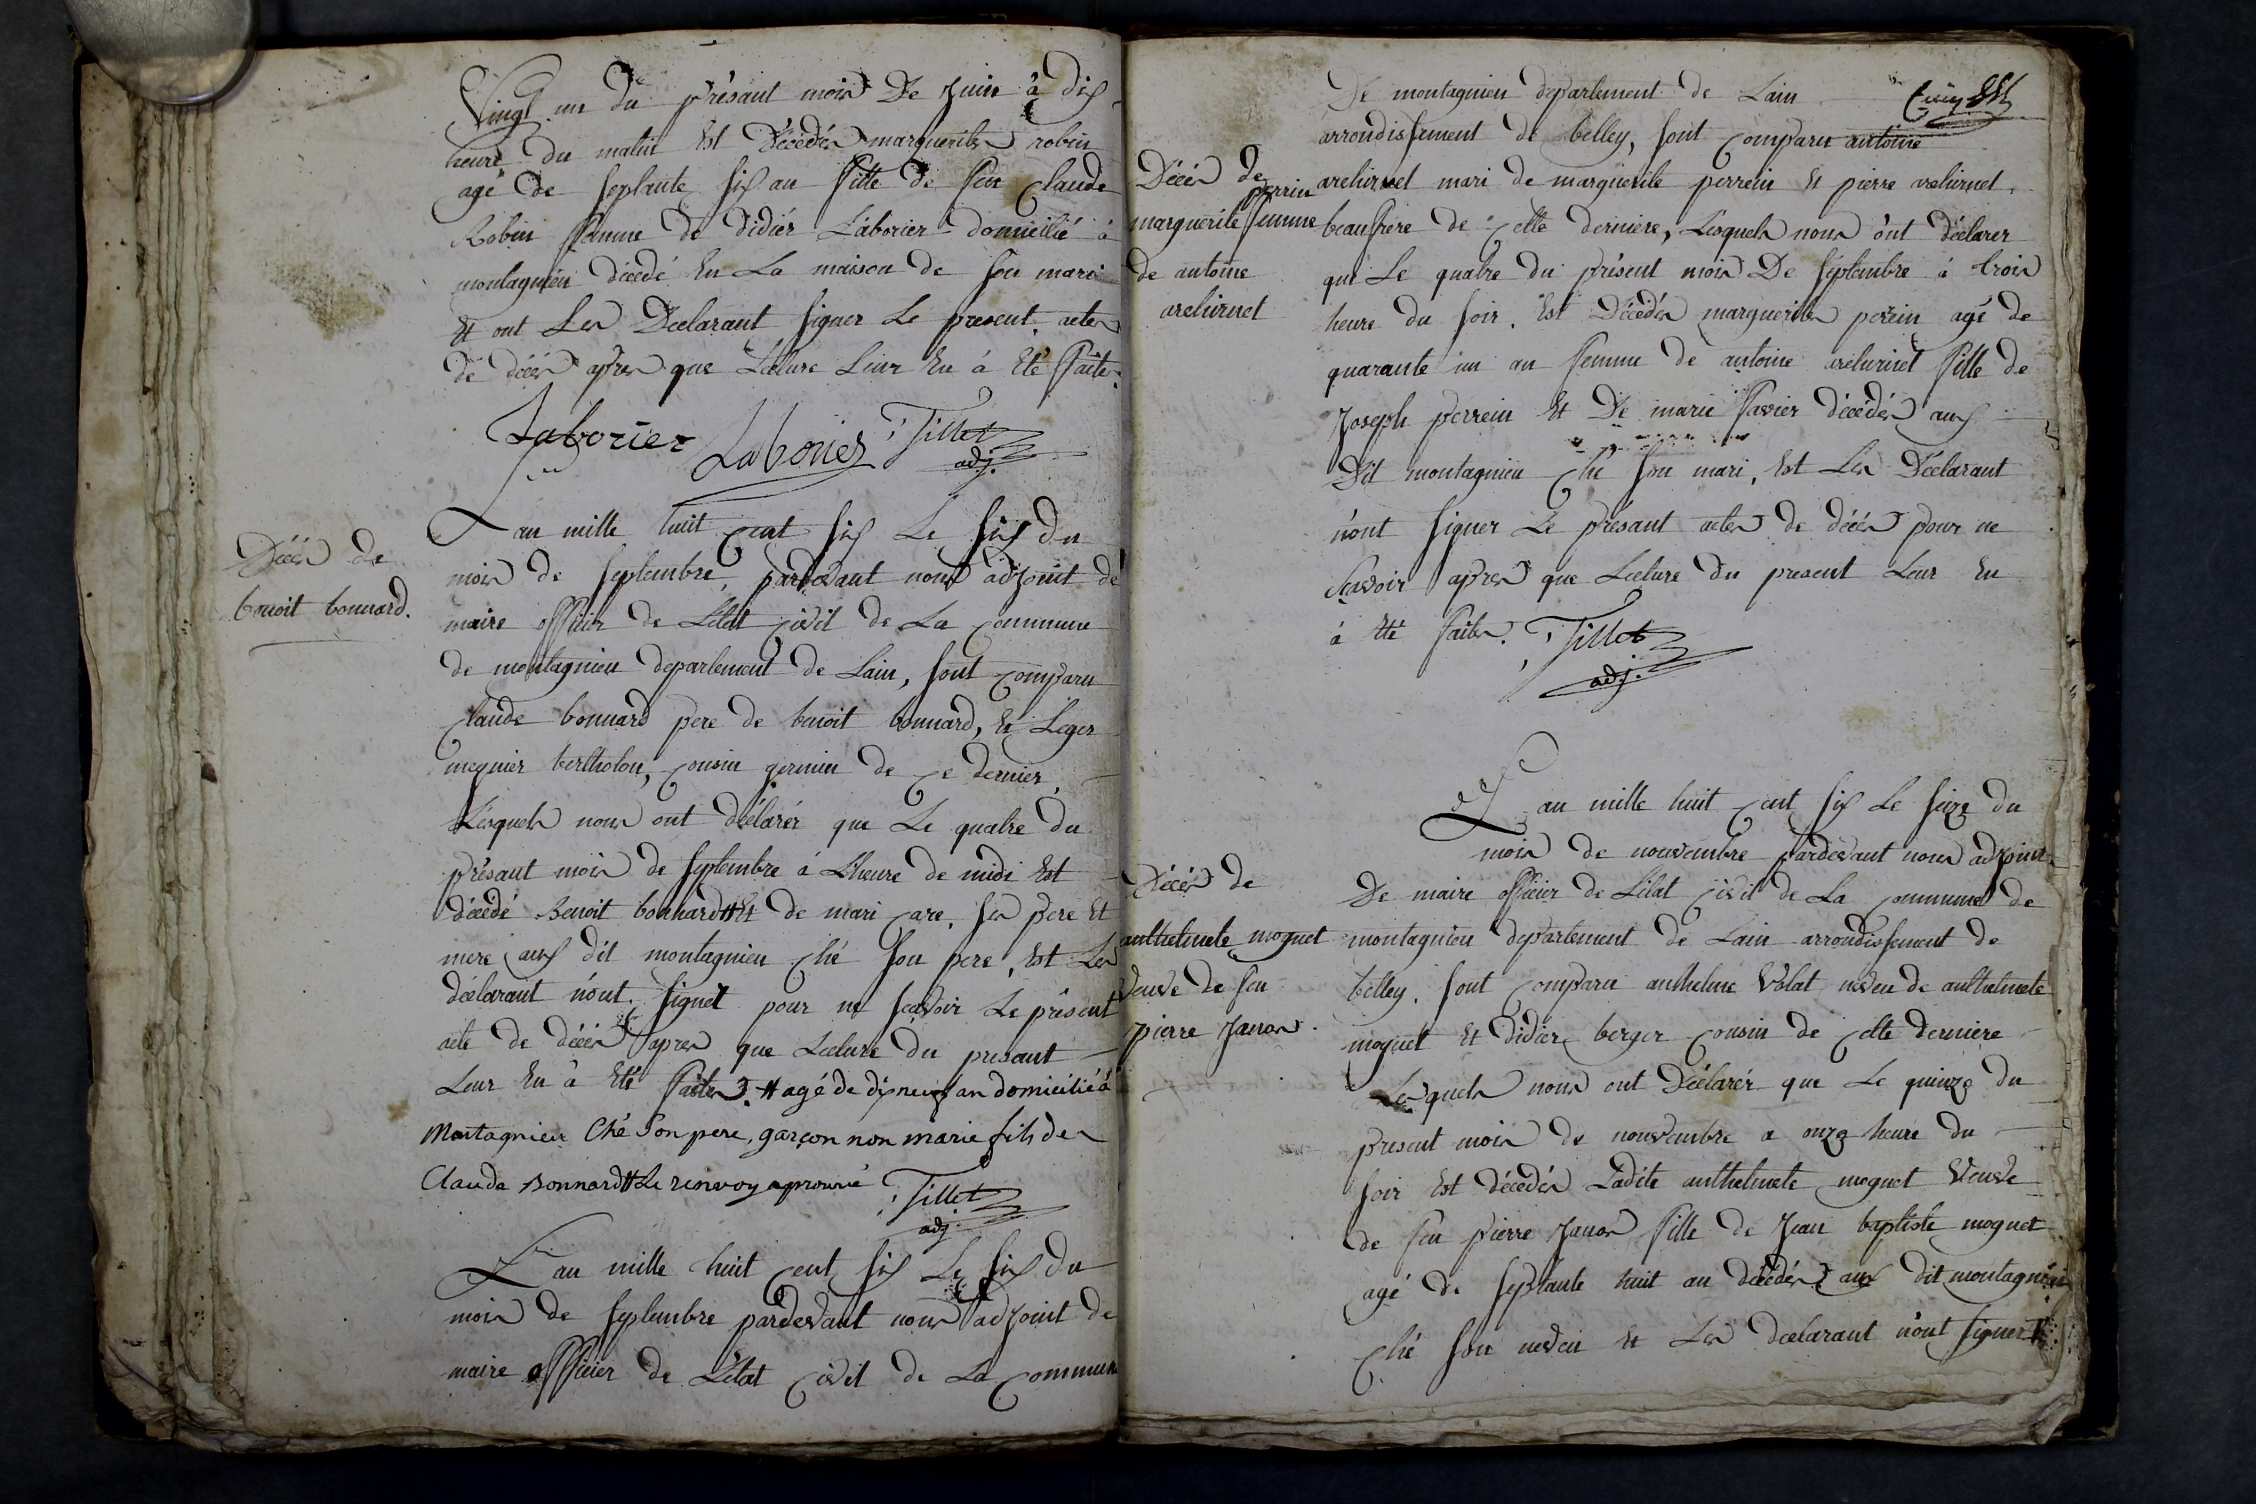 Vingt un du présant mois De Juin à dix
heure du matin Est Décédés marguerites robin
agé de septante six an fille de feu Claude
Robin femme de didiér Laborier domicilié à
montagnieu décedé En La maison de son mari
Et ont Les Declarant signer Le present actes
de décés apres que Lecture Leur En à Eté faite.
Laborier Laborier Tillet
adj.
Décés de
benoit bonnard.
Lan mille huit cent six Le six du
mois de septembre, pardevant nous adjoint de
maire officier de Létat civil de La commune
de montagnieu departement de Lain, sont comparu
Claude bonnard pere de benoit bonnard, Et Leger
meynier bertholon, cousin germin de ce dernier,
Lesquels nous ont déclarér que Le quatre du
présant mois de septembre á Lheure de midi Est
décédé Benoit bonnard # Et de mari care, ses pere Et
mere aux dit montagnieu ché son pere, Est Les
déclarant n'ont signét pour ne scavoir Le présent
acte de décés apres que Lecture du presant
Leur En à Eté faites. # agé de dix neuf an domicilié à
Montagnieu Ché Son pere, garçon non marie fils de
Claude Bonnard # Le renvoy aprouvé Tillet
adj.
Lan mille huit cent six Le six du
mois de septembre pardevant nous adjoint de
maire officier de Létat civil de La commune
De montagnieu departement de Lain
arrondissement de belley, sont comparu antoine
Décés de
perrin
marguerite femme
de antoine
arehirnet
arehirnet mari de marguerite perrein Et pierre arehirnet
beaufrere de cette derniere, Lesquels nous ônt déclarer
que Le quatre du présent mois De séptembre á trois
heure du soir, Est Décédés marguerites perrin agé de
quarante un an femme de antoine arehirnet fille de
Joseph perrein Et De marie favier décédés aux
Dit montagnieu ché son mari, Est Les Déclarant
n'ont signer Le présant actes de décés pour ne
scavoir apres que Lecture du present Leur En
à Eté faites. Tillet
adj.
Lan mille huit cent six Le seize du
mois de nouvembre pardevant nous adjoint
Décés de
anthelmete moguet
veuve de feu
pierre Janon
De maire officier de Létat civil de La commune de
montagnieu departement de Lain arrondissement de
belley, sont comparu anthelme Volat neveu de anthelmete
moguet Et didier berger cousin de cette derniere
Lesquels nous ont Déclarér que Le quinze du
present mois de nouvembre a onze heure du
soir Est décédés Ladite anthelmete moguet veuve
de feu pierre Janon fille de Jean baptiste moguet
agé de septante huit an décédés aux dit montagnieu
ché son neveu Et Les declarant n'ont signer